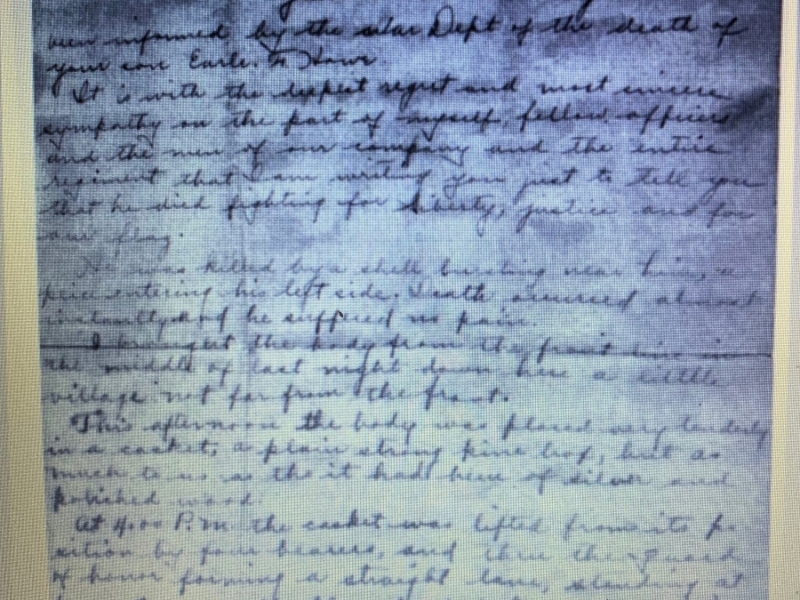 been informed by the War Dept of the death of
your son Earle.
It is with the deepest regret and most sincere
sympathy on the part of myself, fellow officers
and the men of our company and the entire
regiment that I am writing you just to tell you
that he died fighting for liberty, justice and for
our flag.
He was killed by a shell bursting near him, a
piece entering his left side. Death occurred almost
instantly and he suffered no pain.
I brought the body from the front line in
the middle of last night down here a little
village not far from the front.
This afternoon the body was placed very tenderly
in a casket, a plain strong pine box, but as
much to us as tho it had been of silver and
polished wood.
At 4:00 P.M. the casket was lifted from its po-
sition by four bearers, and then the guard
of honor forming a straight lane, standing at